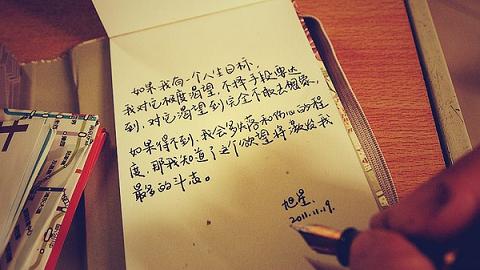 如果我有一个人生目标，
我对它极度渴望，不择手段要达
到，对它渴望到完全不敢去想象，
如果得不到，我会多堕落和伤心的程
度，那我知道了这个欲望将激发我
最多的斗志。
旭星。
2011.11.19.